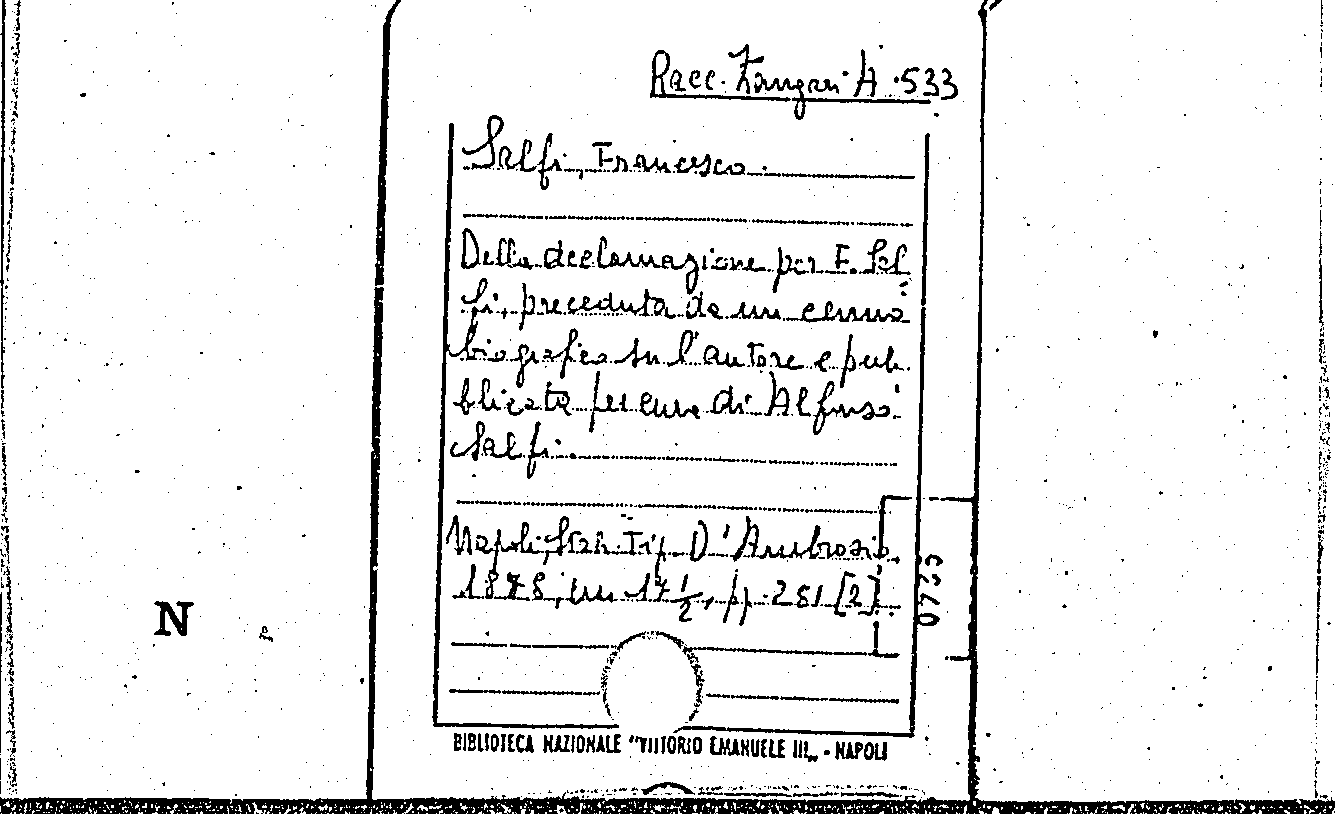 Racc. Zangari A. 533
Salfi, Francesco.
Della declamazione per F. Sal
fi, preceduta da un cenno
biografico su l'autore e pub
blicata per cura di Alfonso
Salfi.
Napoli, Stab. Tip. D'Ambrosio,
1878, cm 17 1/2, pp. 281 [2]
0733
N
BIBLIOTECA NAZIONALE "VITTORIO EMANUELE III„ - NAPOLI